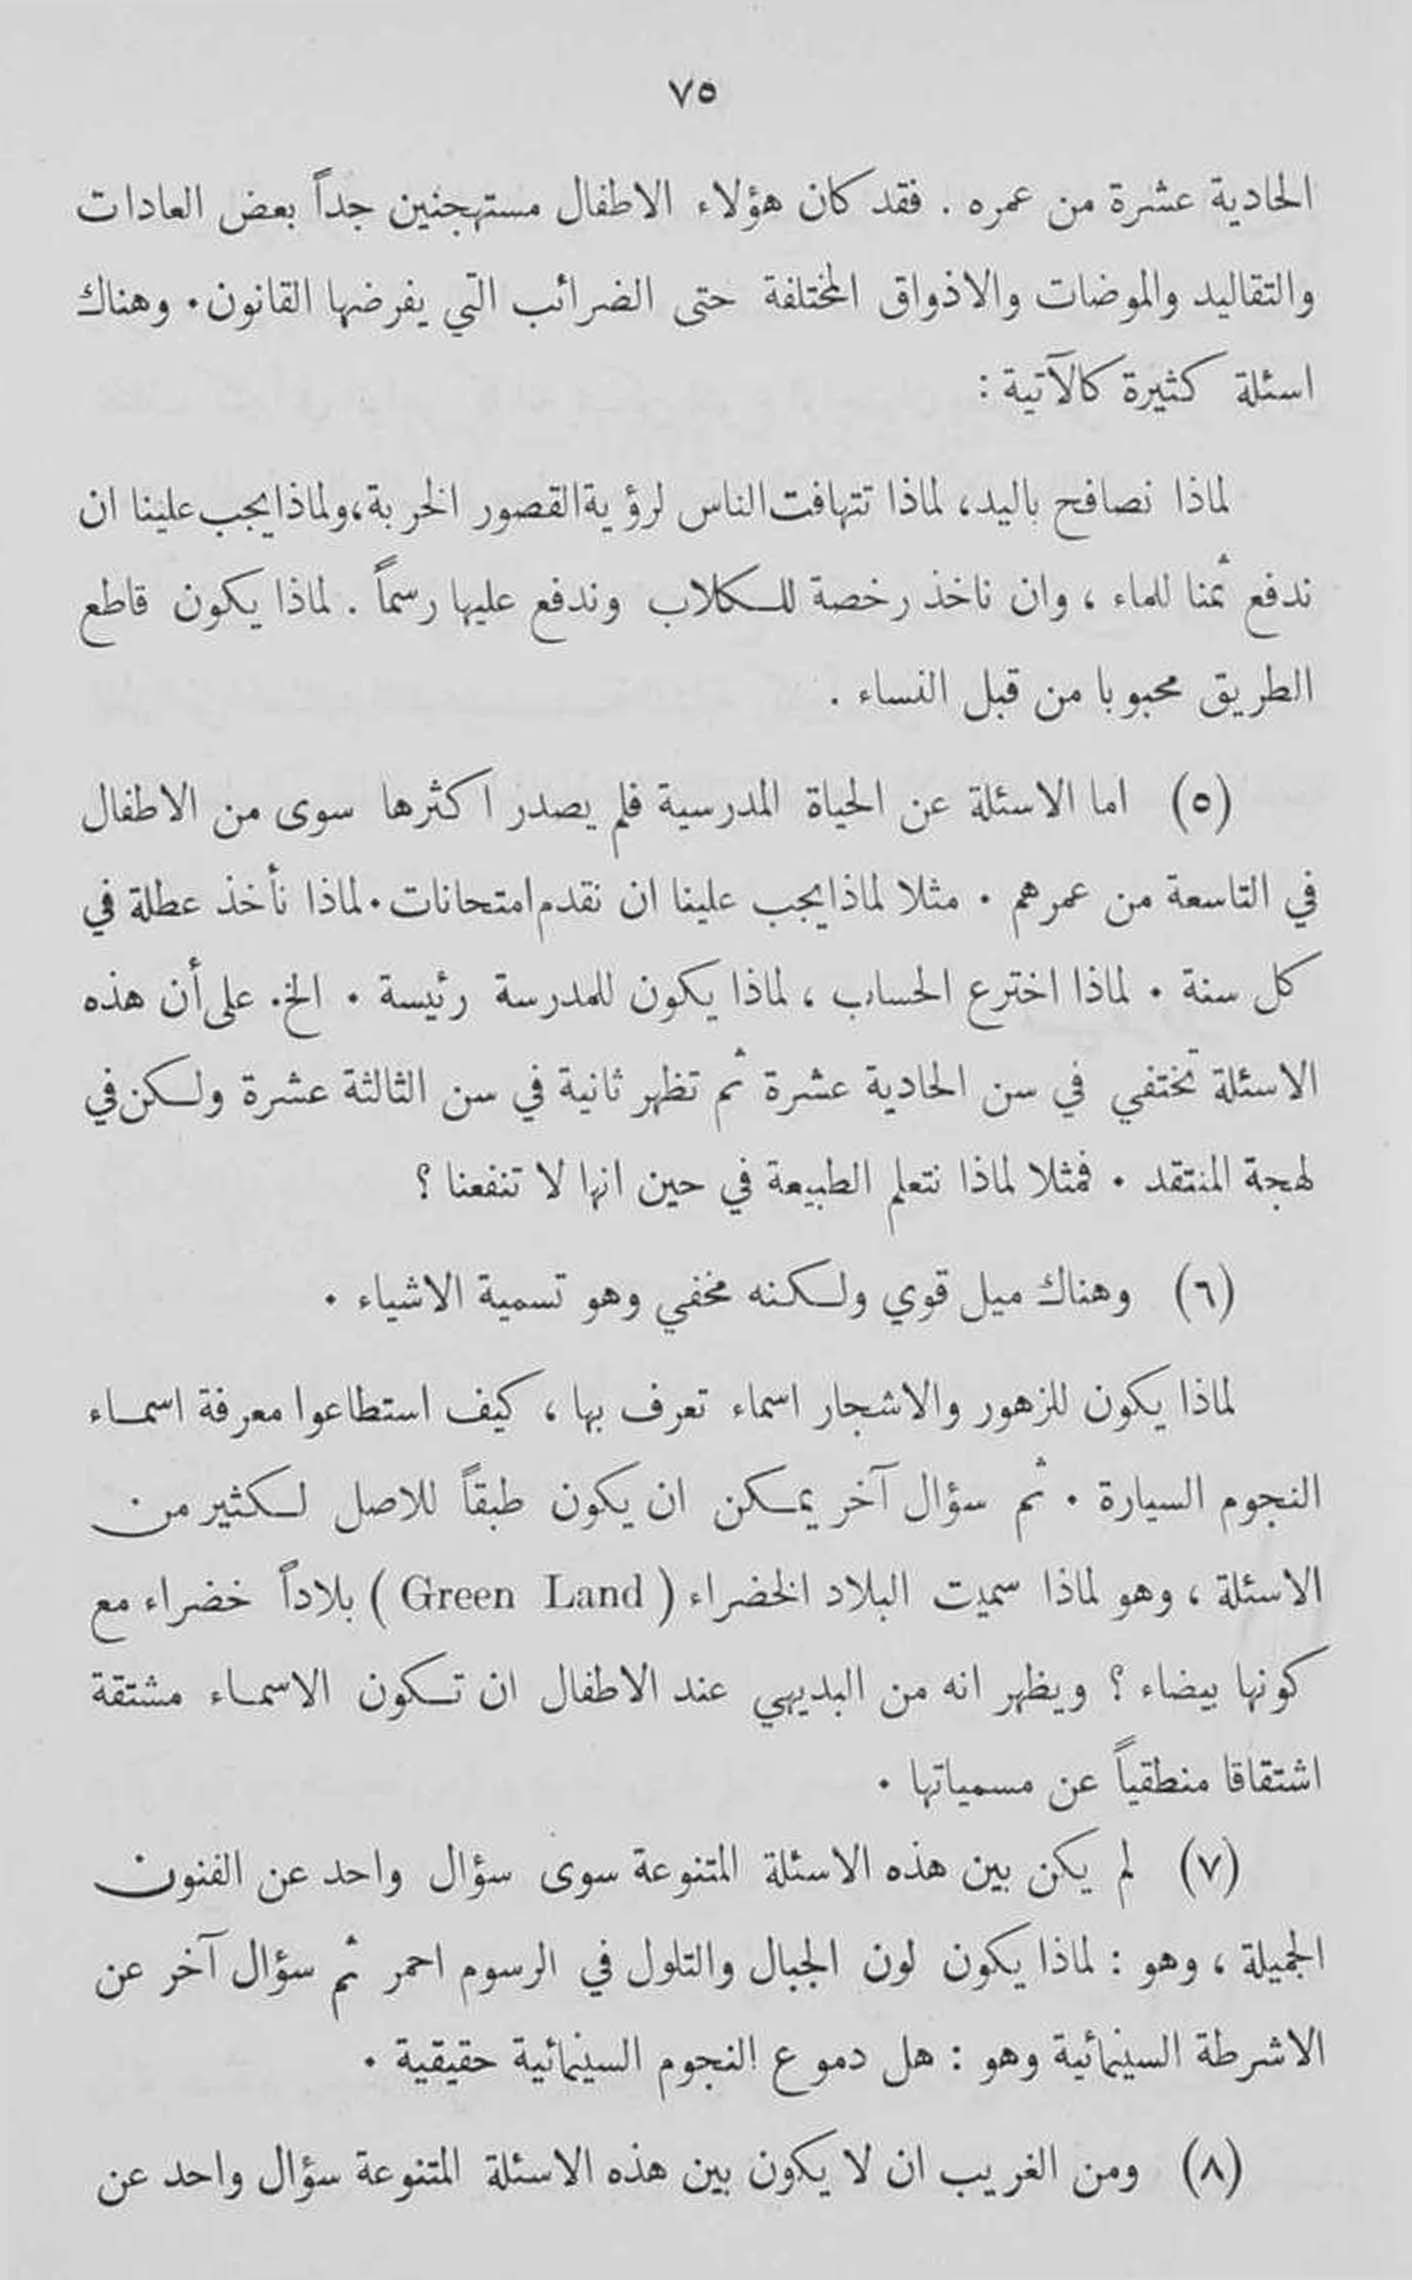 ٧٥
الحادية عشرة من عمره . فقد كان هؤلاء الاطفال مستهجنين جداً بعض العادات
والتقاليد والموضات والاذواق المختلفة حتى الضرائب التي يفرضها القانون . وهناك
اسئلة كثيرة كالآتية :
لماذا نصافح باليد ، لماذا تتهافت الناس لرؤية القصور الخربة ، ولماذا يجب علينا ان
ندفع ثمنا للماء ، وان ناخذ رخصة للكلاب وندفع عليها رسماً . لماذا يكون قاطع
الطريق محبوبا من قبل النساء .
(٥) اما الاسئلة عن الحياة المدرسية فلم يصدر اكثرها سوى من الاطفال
في التاسعة من عمرهم . مثلا لماذا يجب علينا ان نقدم امتحانات . لماذا نأخذ عطلة في
كل سنة . لماذا اخترع الحساب ، لماذا يكون للمدرسة رئيسة . الخ . على أن هذه
الاسئلة تختفي في سن الحادية عشرة ثم تظهر ثانية في سن الثالثة عشرة ولكن في
لهجة المنتقد . فمثلا لماذا نتعلم الطبيعة في حين انها لا تنفعنا ؟
(٦) وهناك ميل قوي ولكنه مخفي وهو تسمية الاشياء .
لماذا يكون للزهور والاشجار اسماء تعرف بها ، كيف استطاعوا معرفة اسماء
النجوم السيارة . ثم سؤال آخر يمكن ان يكون طبقاً للاصل لكثير من
الاسئلة ، وهو لماذا سميت البلاد الخضراء ( Green Land ) بلاداً خضراء مع
كونها بيضاء ؟ ويظهر انه من البديهي عند الاطفال ان تكون الاسماء مشتقة
اشتقاقا منطقياً عن مسمياتها .
(٧) لم يكن بين هذه الاسئلة المتنوعة سوى سؤال واحد عن الفنون
الجميلة ، وهو : لماذا يكون لون الجبال والتلول في الرسوم احمر ثم سؤال آخر عن
الاشرطة السينمائية وهو : هل دموع النجوم السينمائية حقيقية .
(٨) ومن الغريب ان لا يكون بين هذه الاسئلة المتنوعة سؤال واحد عن